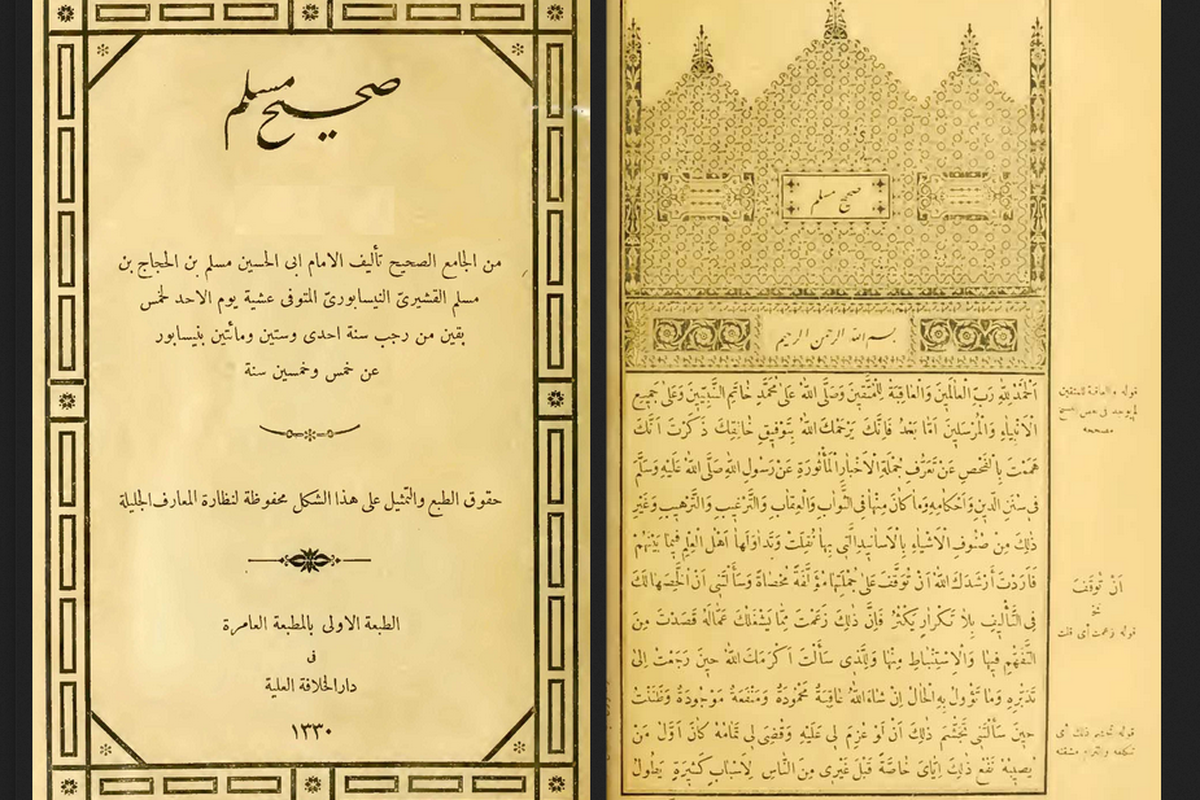 صحيح مسلم
من الجامع الصحيح تأليف الامام ابى الحسين مسلم بن الحجاج بن
مسلم القشيرىّ النيسابورىّ المتوفى عشية يوم الاحد لخمس
بقين من رجب سنة احدى وستين ومأتين بنيسابور
عن خمس وخمسين سنة
حقوق الطبع والتمثيل على هذا الشكل محفوظة لنظارة المعارف الجليلة
الطبعة الاولى بالمطبعة العامرة
فى
دار الخلافة العلية
١٣٣٠
صحيح مسلم
بسم الله الرحمن الرحيم
اَلْحَمْدُ لِلّٰهِ رَبِّ الْعالَمِينَ وَالْعَاقِبَةُ لِلْمُتَّقِينَ وَصَلَّى اللهُ عَلىٰ مُحَمَّدٍ خَاتَمِ النَّبِيِّينَ وَعَلىٰ جَمِيعِ
الْاَنْبِياءِ وَالْمُرْسَلِينَ اَمَّا بَعْدُ فَاِنَّكَ يَرْحَمُكَ اللهُ بِتَوْفِيقِ خَالِقِكَ ذَكَرْتَ اَنَّكَ
هَمَمْتَ بِالْفَحْصِ عَنْ تَعَرُّفِ جُمْلَةِ الْاَخْبارِ الْمَأْثُورَةِ عَنْ رَسُولِ اللهِ صَلَّى اللهُ عَلَيْهِ وَسَلَّمَ
فِى سُنَنِ الدِّينِ وَاَحْكامِهِ وَما كانَ مِنْها فِى الثَّوابِ وَالْعِقابِ وَالتَّرْغيبِ وَالتَّرْهيبِ وَغَيْرِ
ذٰلِكَ مِنْ صُنُوفِ الْاَشْياءِ بِالْاَسانيدِ الَّتى بِها نُقِلَتْ وَتَداوَلَها اَهْلُ الْعِلْمِ فيما بَيْنَهُمْ
فَاَرَدْتَ اَرْشَدَكَ اللهُ اَنْ تُوَقَّفَ عَلىٰ جُمْلَتِها مُؤَلَّفَةً مُحْصاةً وَسَأَلْتَنى اَنْ اُلَخِّصَها لَكَ
فِى التَّأْليفِ بِلا تَكْرارٍ يَكْثُرُ فَاِنَّ ذٰلِكَ زَعَمْتَ مِمّا يَشْغَلُكَ عَمّا لَهُ قَصَدْتَ مِنَ
التَّفَهُّمِ فيها وَالْاِسْتِنْباطِ مِنْها وَلِلَّذى سَأَلْتَ اَكْرَمَكَ اللهُ حينَ رَجَعْتُ اِلىٰ
تَدَبُّرِهِ وَما تَؤُولُ بِهِ الْحالُ اِنْ شاءَ اللهُ عاقِبَةٌ مَحْمُودَةٌ وَمَنْفَعَةٌ مَوْجُودَةٌ وَظَنَنْتُ
حينَ سَأَلْتَنى تَجَشُّمَ ذٰلِكَ اَنْ لَوْ عُزِمَ لى عَلَيْهِ وَقُضِىَ لى تَمامُهُ كانَ اَوَّلُ مَنْ
يُصيبُهُ نَفْعُ ذٰلِكَ اِيّاىَ خاصَّةً قَبْلَ غَيْرى مِنَ النّاسِ لِاَسْبابٍ كَثيرَةٍ يَطُولُ
قوله والعاقبة للمتقين
لم يوجد فى بعض النسخ
مصححه
اَنْ تُوقَفَ
نخ
قوله زعمت أى قلت
قوله تجشم ذلك أى
تكلفه والتزام مشقته